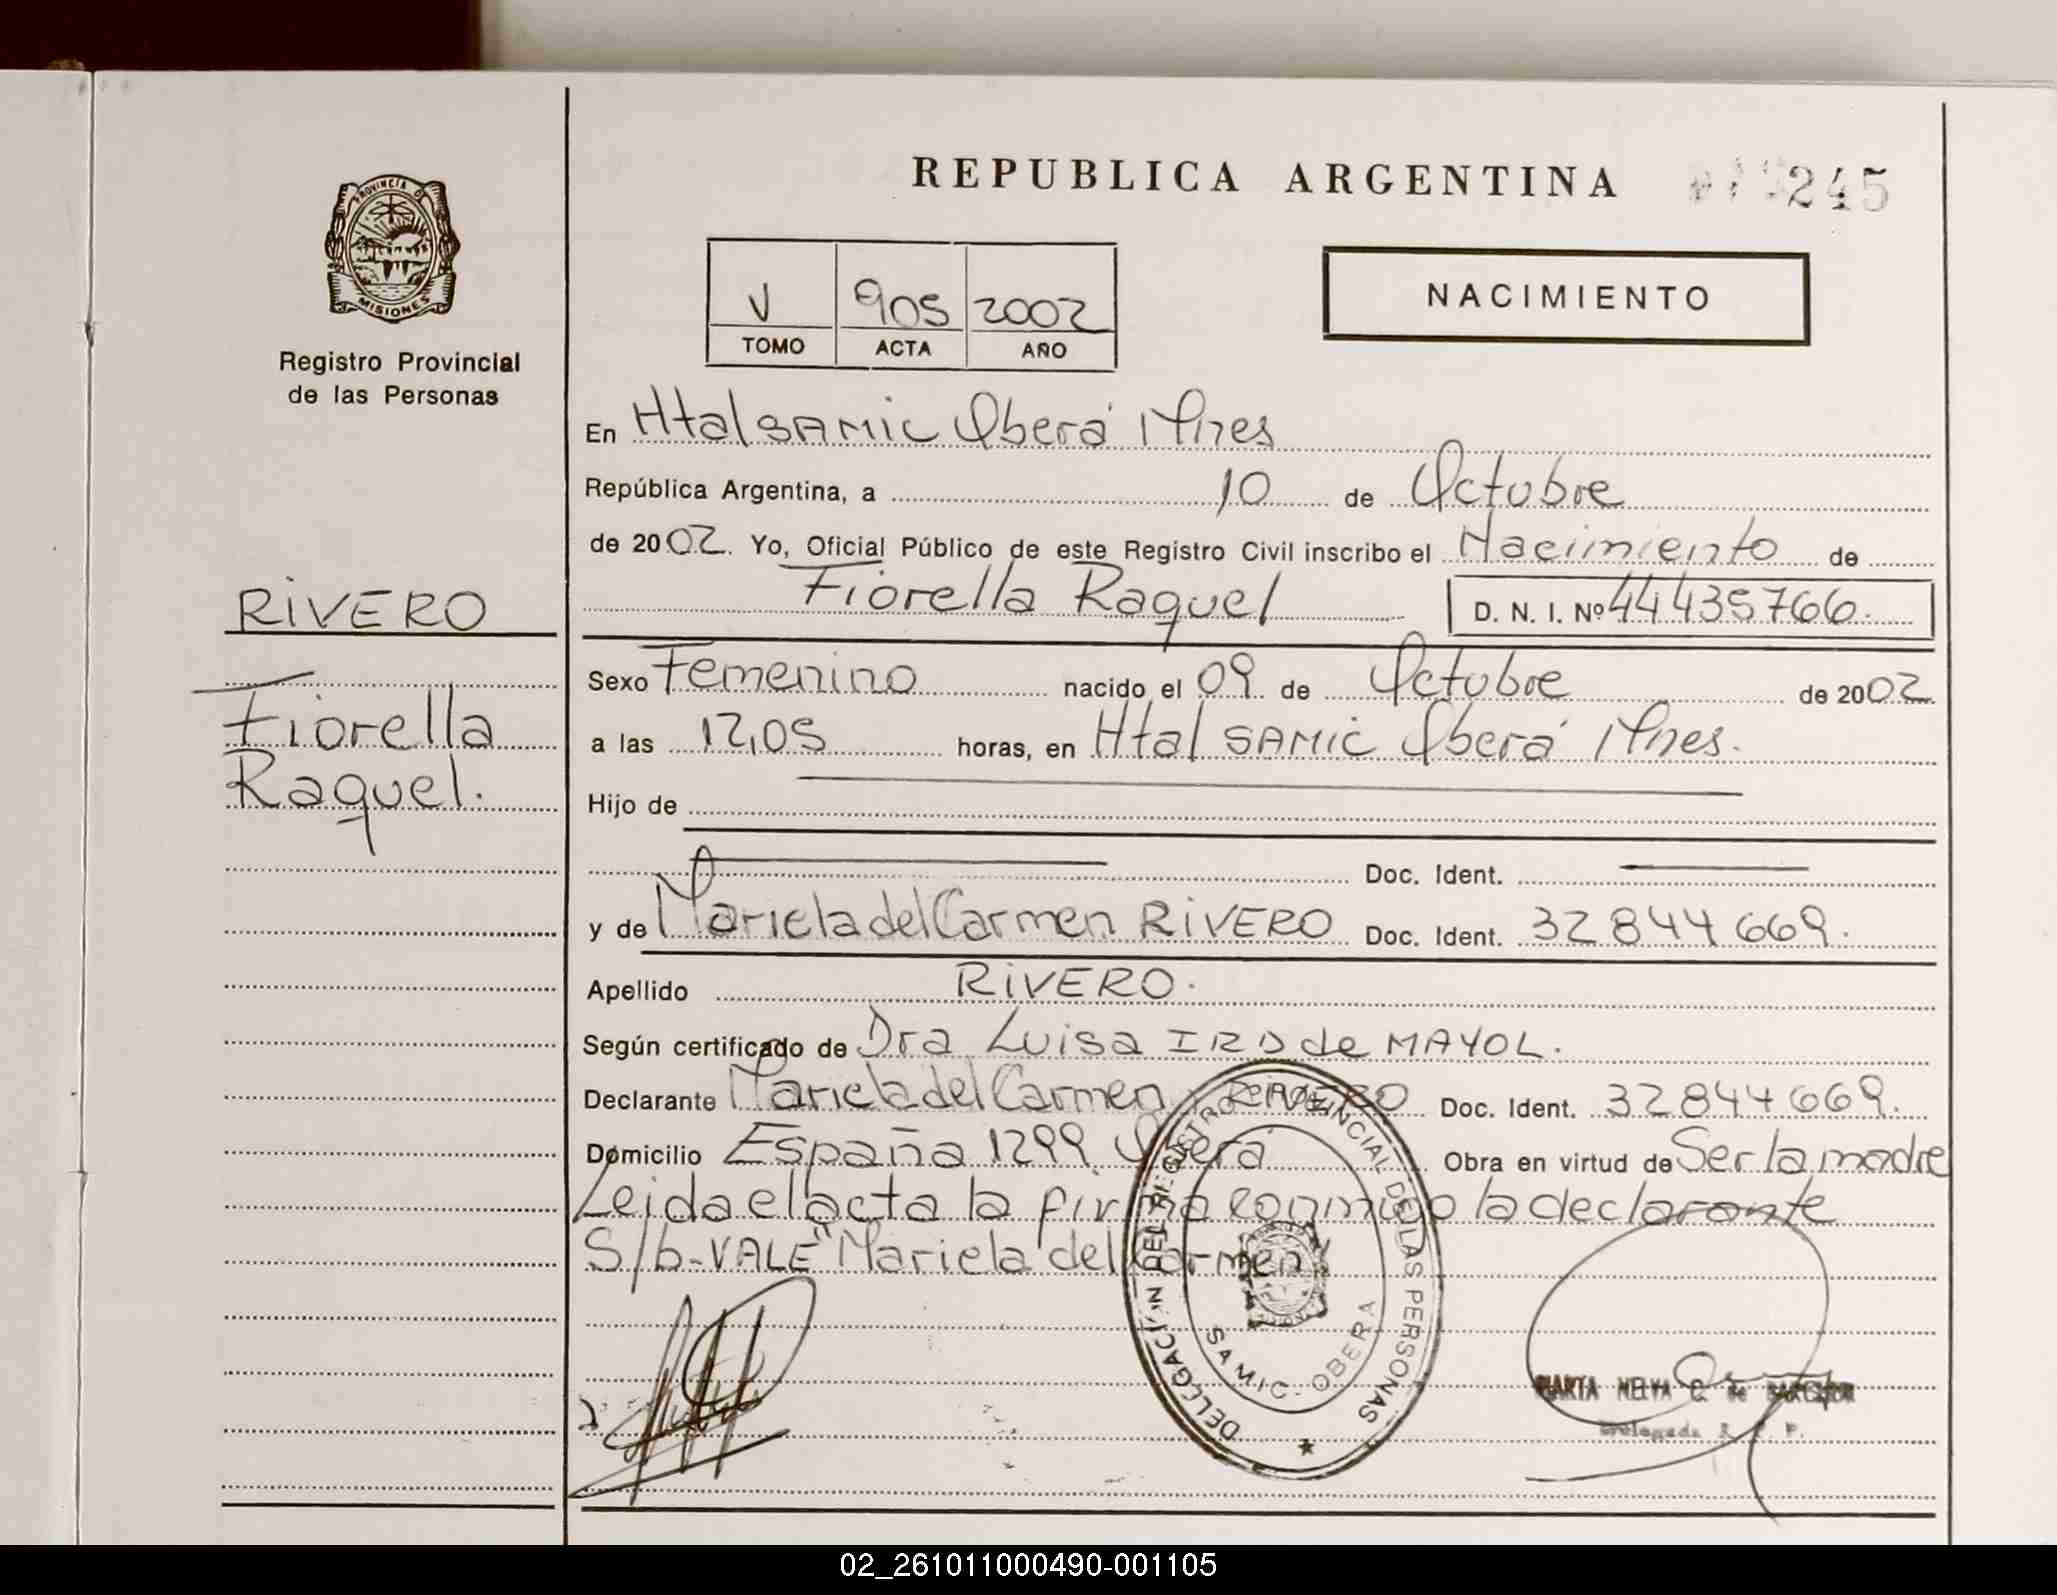 REPUBLICA ARGENTINA
245
PROVINCIA DE
MISIONES
Registro Provincial
de las Personas
V 905 2002
TOMO ACTA AÑO
NACIMIENTO
En Htal SAMIC Oberá Mnes
República Argentina, a 10 de Octubre
de 2002. Yo, Oficial Público de este Registro Civil inscribo el Nacimiento de
Fiorella Raquel D. N. I. Nº 44435766.
RIVERO
Fiorella
Raquel.
Sexo Femenino nacido el 09 de Octubre de 2002
a las 12,05 horas, en Htal SAMIC Oberá Mnes.
Hijo de
Doc. Ident.
y de Mariela del Carmen RIVERO Doc. Ident. 32844669.
Apellido RIVERO.
Según certificado de Dra Luisa de MAYOL.
Declarante Mariela del Carmen RIVERO Doc. Ident. 32844669.
Domicilio España 1299 Oberá Obra en virtud de Ser la madre
Leida el acta la firma conmigo la declarante
S/b-VALE "Mariela del Carmen"
DELEGACIÓN DEL REGISTRO PROVINCIAL DE LAS PERSONAS
SAMIC - OBERA
MARTA de
Delegada
02_261011000490-001105